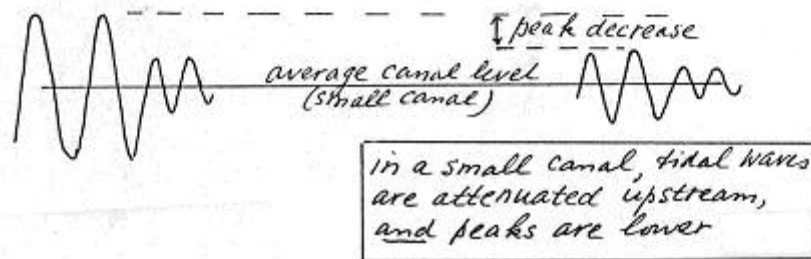 peak decrease
average canal level
(small canal)
in a small canal, tidal waves
are attenuated upstream,
and peaks are lower